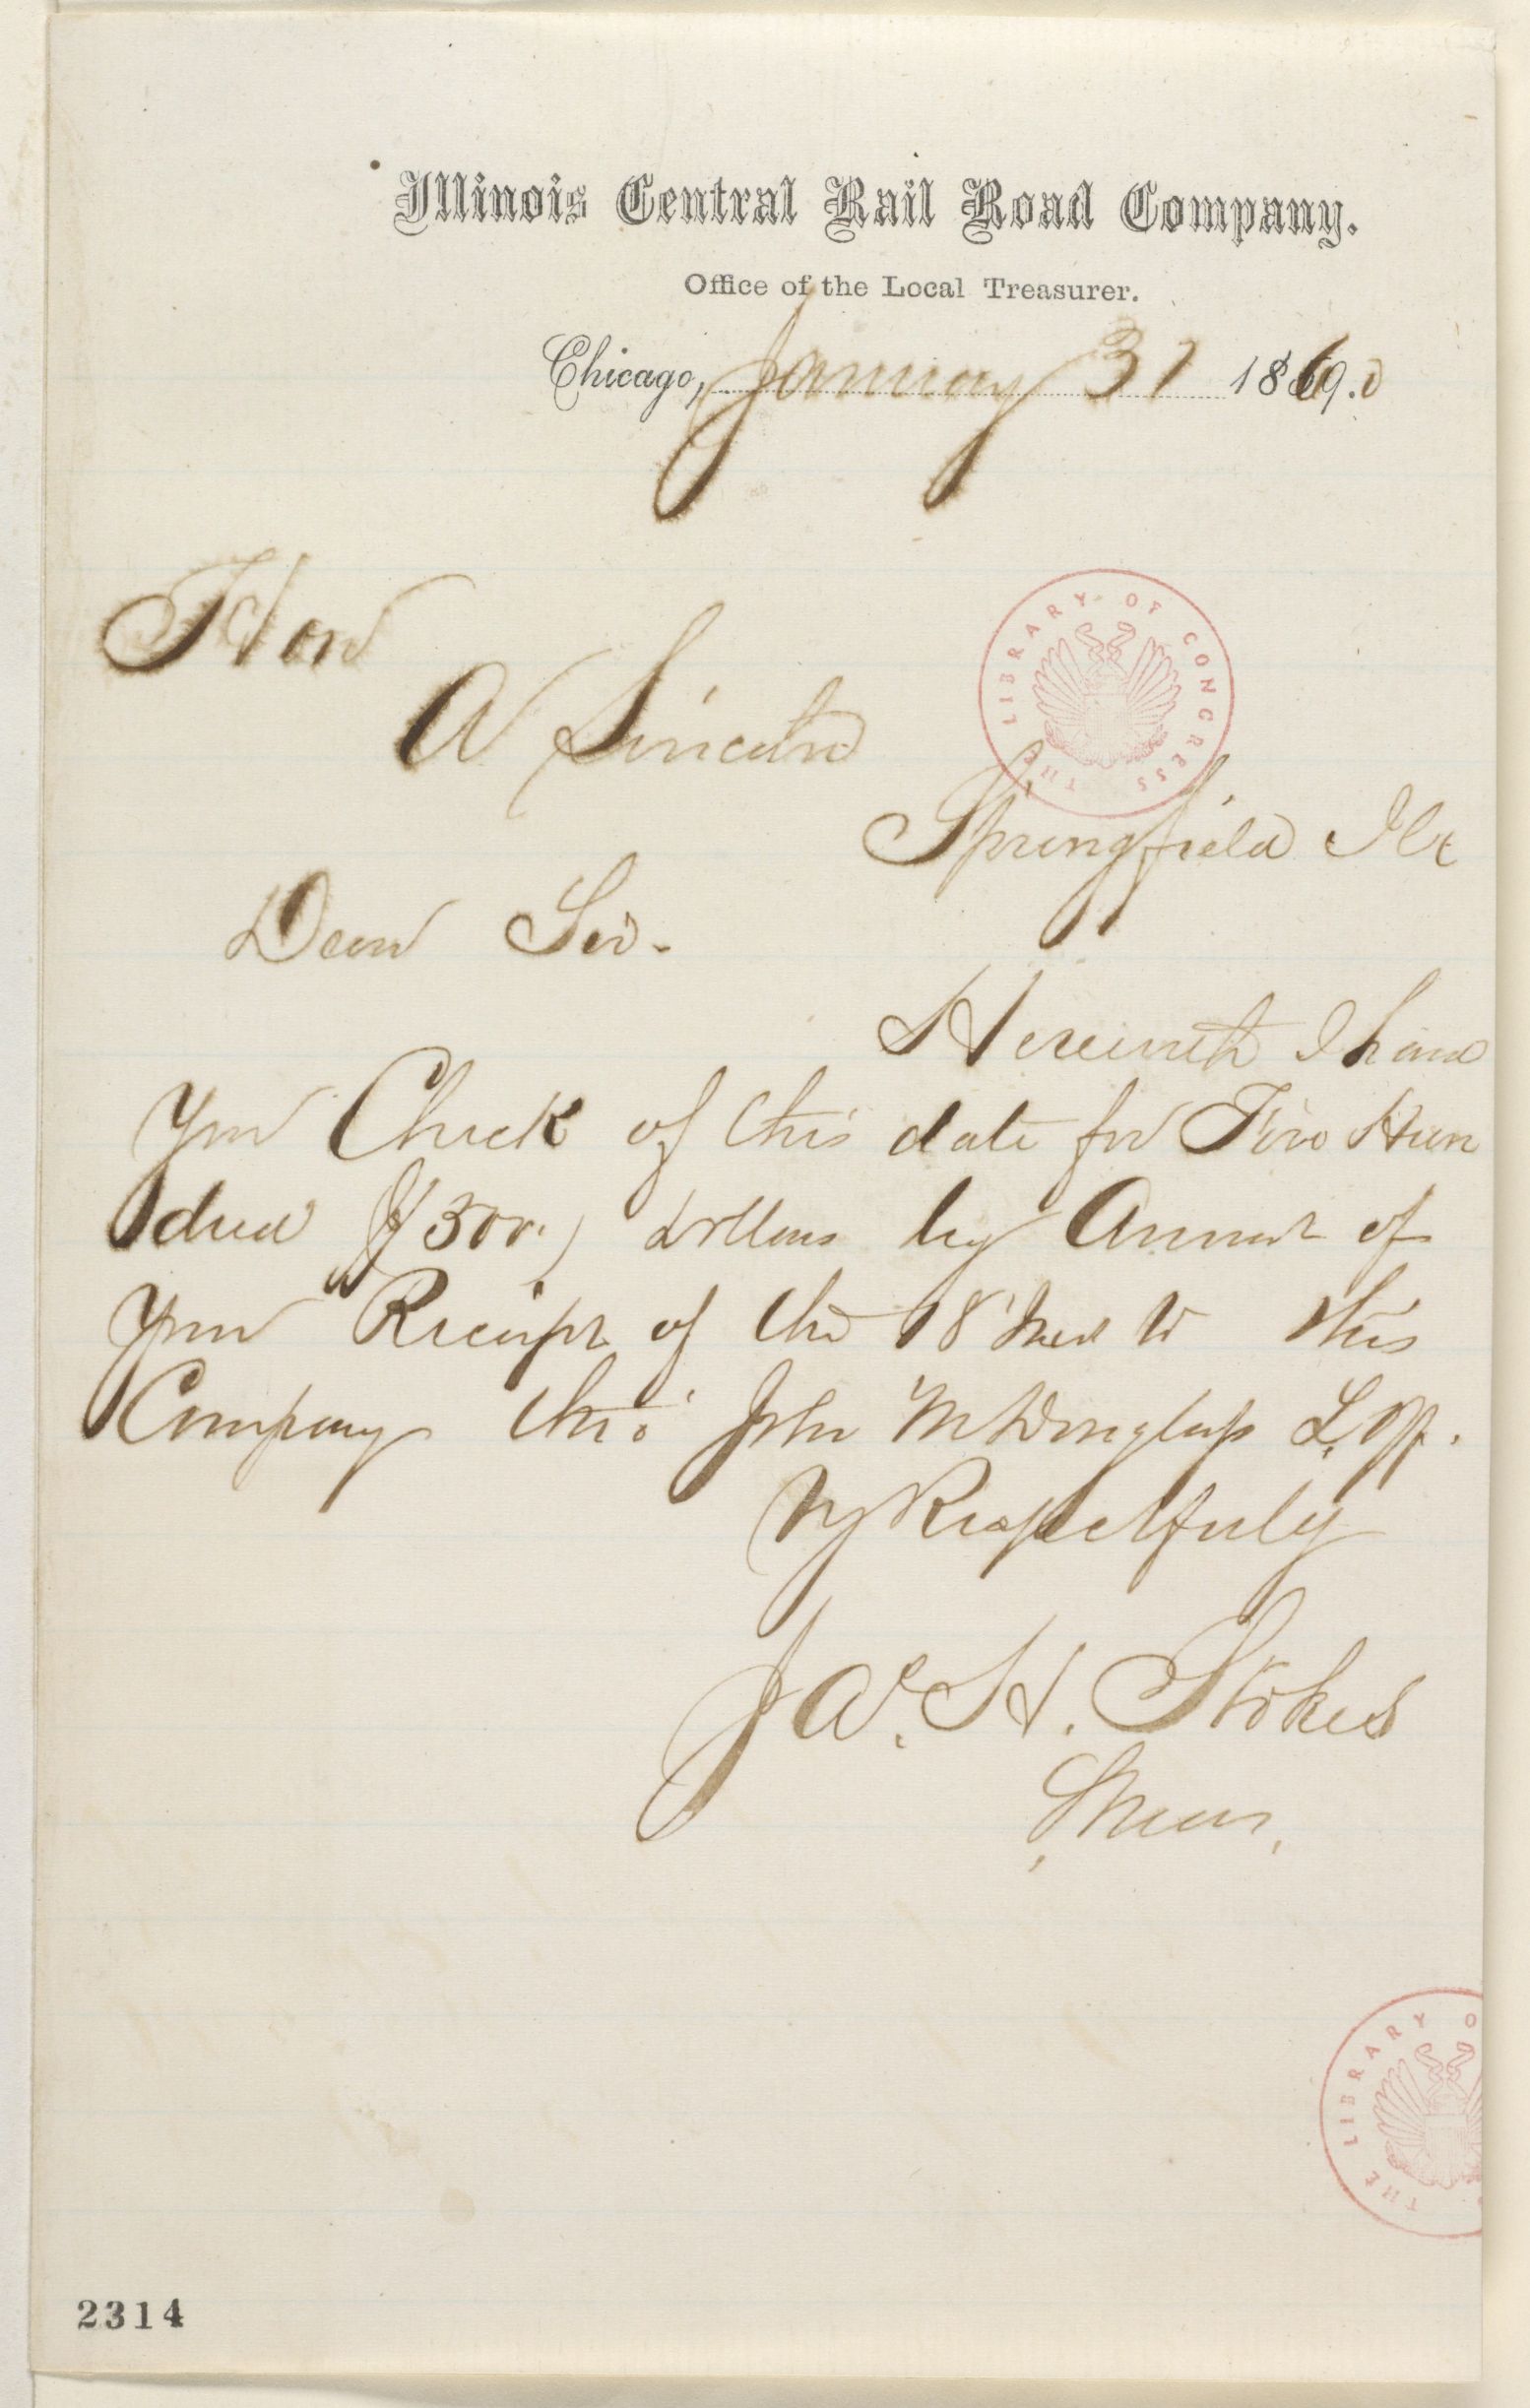 Illinois Central Rail Road Company.
Office of the Local Treasurer.
Chicago, January 31 1860.
Hon
A Lincoln
THE LIBRARY OF CONGRESS
Springfield Ills
Dear Sir.
Herewith I hand
you Check of this date for Five Hun
dred ($500.) Dollars by Amount of
your Receipt of the 18 Inst to this
Company thro' John M Douglass
Vy Respectfully
Jas. H. Stokes
THE LIBRARY O
2314